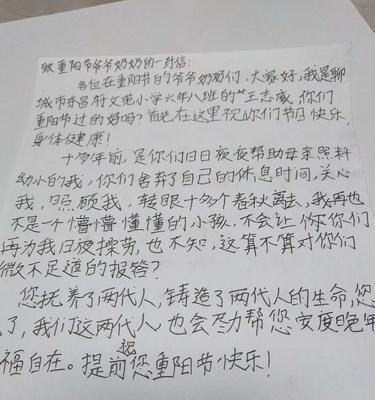 致重阳节爷爷奶奶的一封信:
各位在重阳节的爷爷奶奶们,大家好,我是聊
城市东昌府文苑小学六年八班的王志威,你们
重阳节过的好吗?首先在这里祝你们节日快乐,
身体健康!
十多年前,是你们日日夜夜帮助母亲照料
幼小的我,你们舍弃了自己的休息时间,关心
我,照顾我,转眼十多个春秋离去,我再也
不是一个懵懵懂懂的小孩,不会让你们
再为我日夜操劳,也不知,这算不算对你们
微不足道的报答?
您抚养了两代人,铸造了两代人的生命,您
了,我们这两代人也会尽力帮您安度晚年
福自在。提前祝您重阳节快乐!